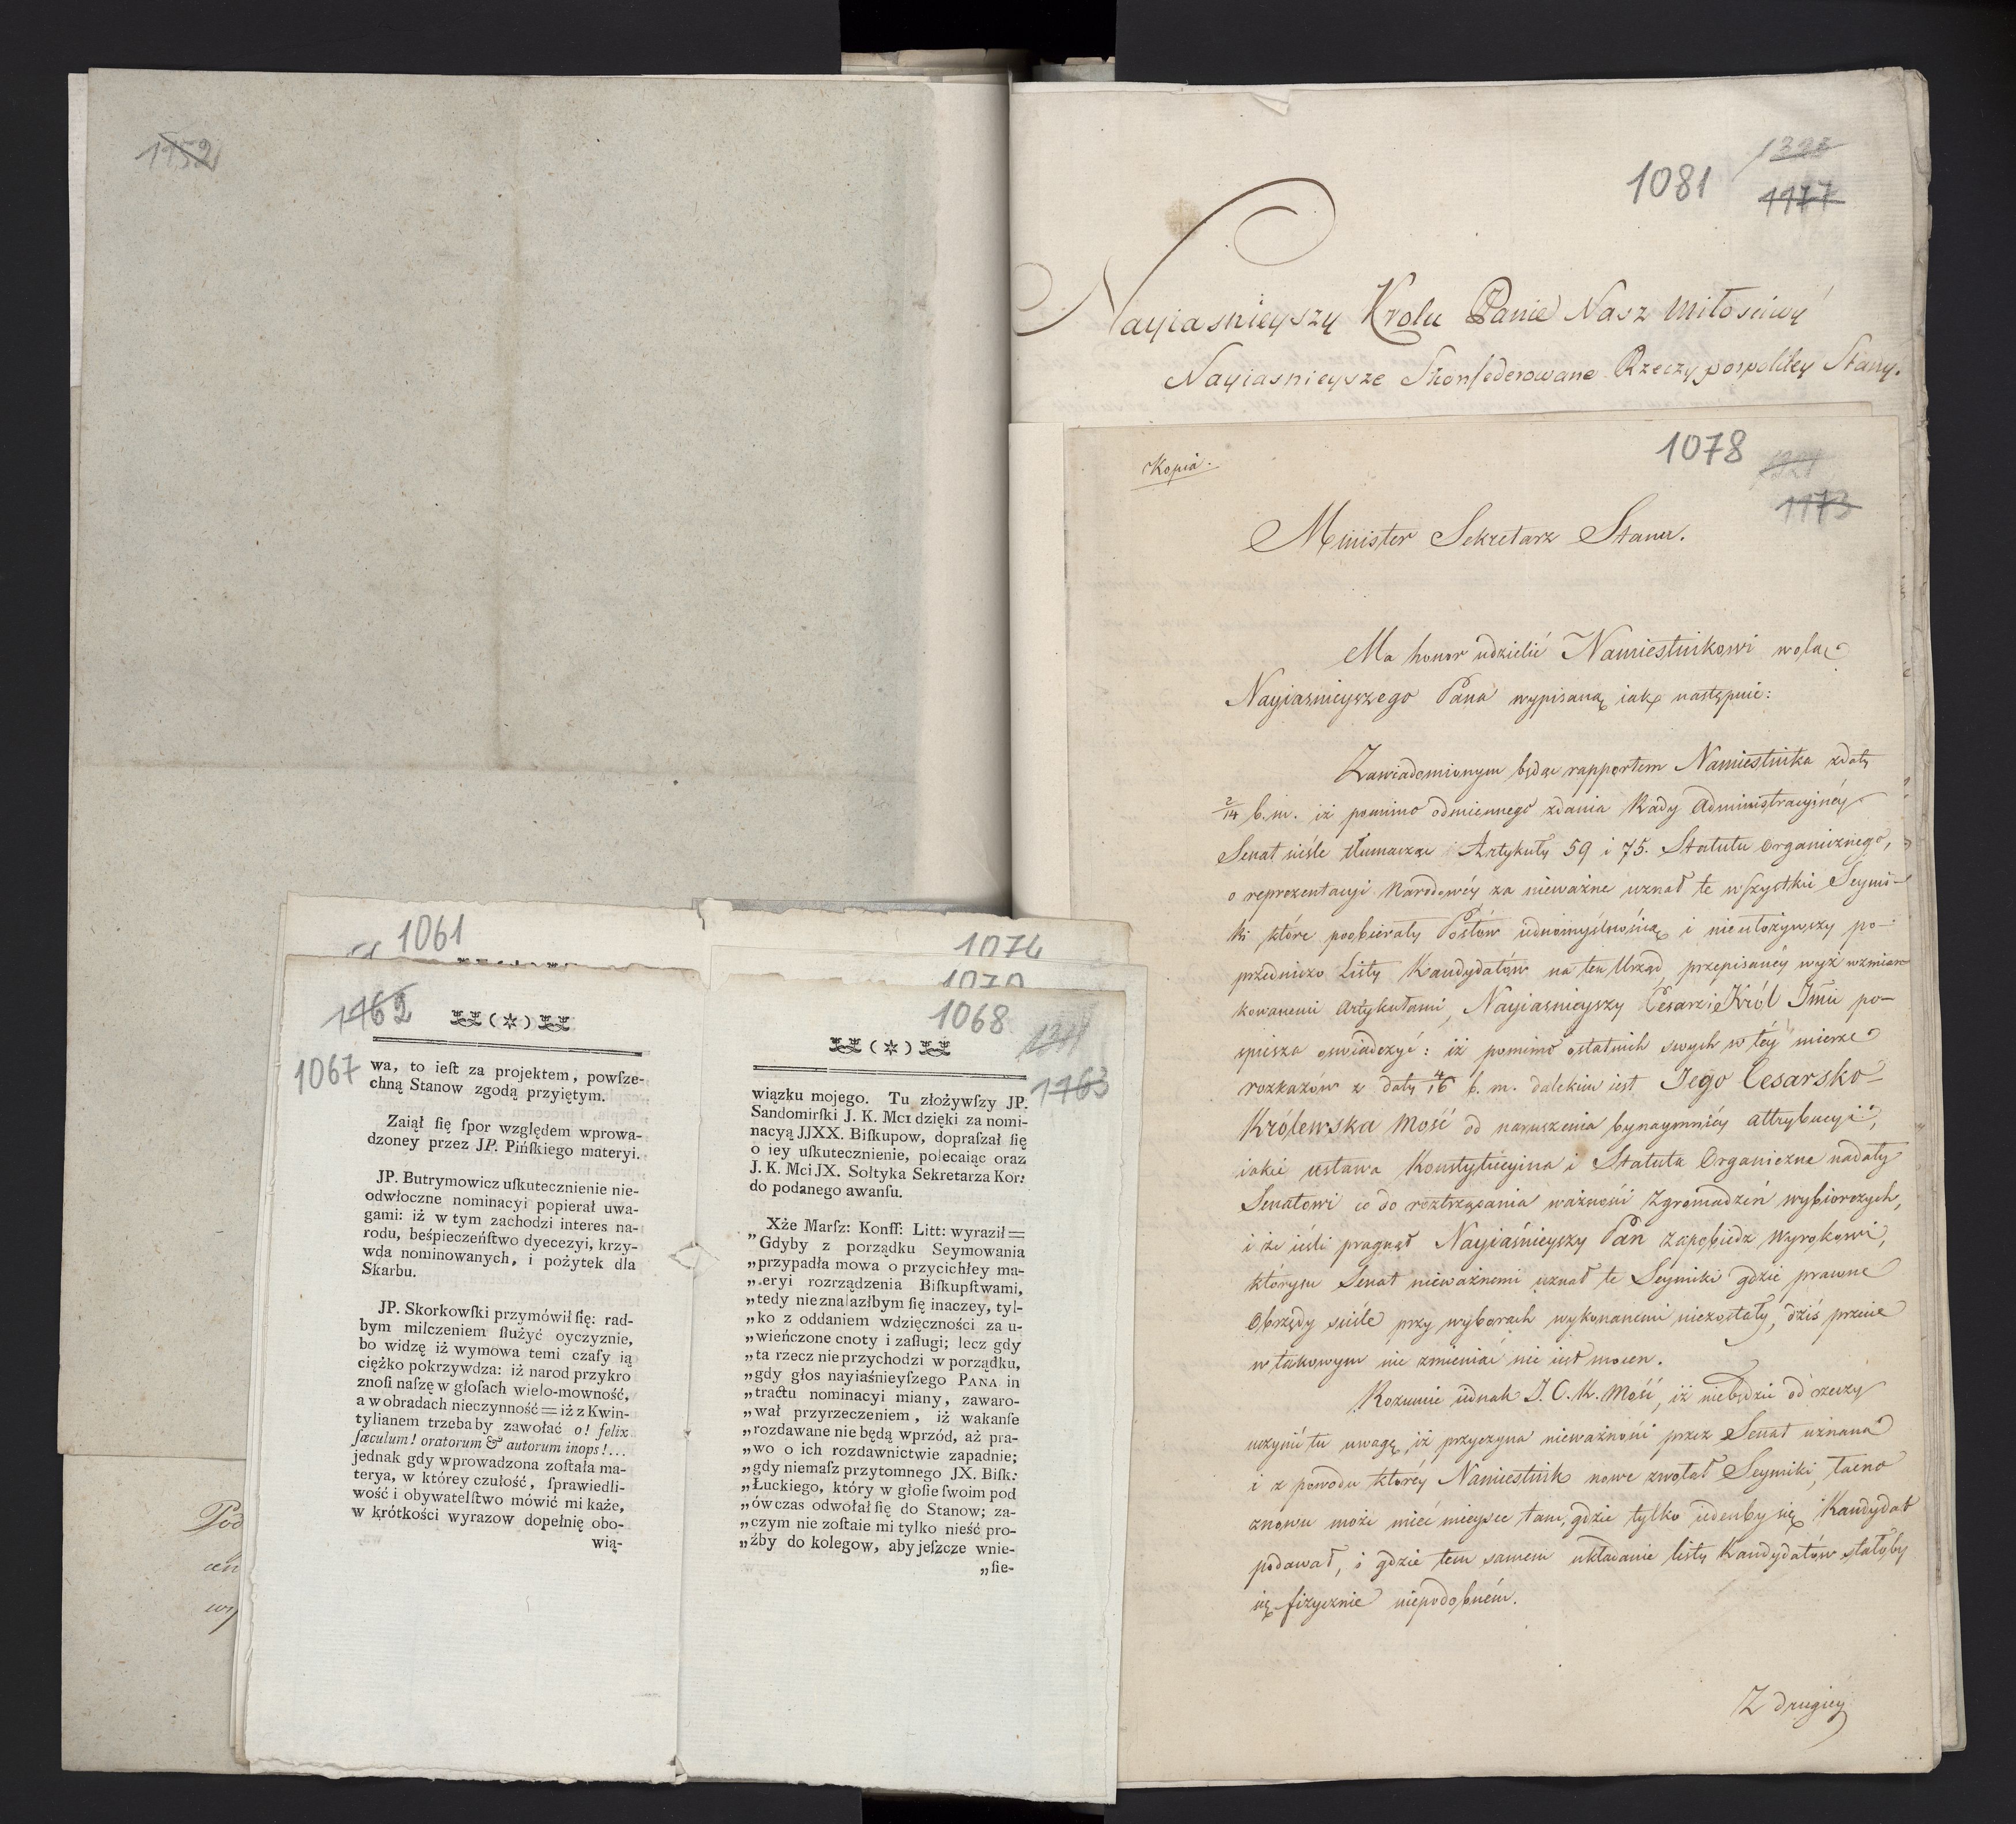 1152
1081
1395
1177
Nayiasnieyszy Krolu Panie Nasz Miłosciwy
Nayiasnieysze Skonfederowane Rzeczypospolitey Stany.
Kopia.
1078
1173
Minister Sekretarz Stanu.
Ma honor udzielić Namiestnikowi wolą
Nayiasnieyszego Pana wypisaną iak następuie:
Zawiadomionym będąc rapportem Namiestnika z daty
2/14 b. m. iż pomimo odmiennego zdania Rady Administracyjnéy
Senat ściśle tłumacząc Artykuły 59 i 75. Statutu Organicznego,
o reprezentacyi Narodowéy, za nieważne uznał te wszystkie Seymi-
ki które poobierały Posłów iednomyślnością i nieułożywszy po-
przedniczo Listy Kandydatów na ten Urząd, przepisanéy wyż wzmian-
kowanemi Artykułami, Nayiasnieyszy Cesarz i Król Jmć po-
spiesza oswiadczyć: iż pomimo ostatnich swych w téy mierze
rozkazów z daty 4/16 b. m. dalekim iest Jego Cesarsko-
Królewska Mość od naruszenia bynaymniéy attrybucyi,
iakie ustawa Konstytucyina i Statuta Organiczne nadały
Senatowi co do roztrząsania ważności Zgromadzeń wybiorczych,
i że ieśli pragnął Nayiaśnieyszy Pan zapobiedz wyrokowi,
którym Senat nieważnemi uznał te Seymiki gdzie prawne
Obrzędy ściśle przy wyborach wykonanemi niezostały, dziś przecie
w takowym nic zmieniać nie iest mocen.
Rozumie iednak J. C. K. Mość, iż niebędzie od rzeczy
uczynić tu uwagę, iż przyczyna nieważności przez Senat uznana
i z powodu któréy Namiestnik nowe zwołał Seymiki, łacno
znowu może mieć mieysce tam, gdzie tylko iedenby się Kandydat
podawał, i gdzie tem samem układanie listy Kandydatów stałoby
się fizycznie niepodobném.
Z drugiey
1061
1074
1070
1162
1067
(*)
wa, to ieſt za projektem, powſze-
chną Stanow zgodą przyiętym.
Zaiął ſię ſpor względem wprowa-
dzoney przez JP. Pińſkiego materyi.
JP. Butrymowicz uſkutecznienie nie-
odwłoczne nominacyi popierał uwa-
gami: iż w tym zachodzi interes na-
rodu, beśpieczeńſtwo dyecezyi, krzy-
wda nominowanych, i pożytek dla
Skarbu.
JP. Skorkowſki przymówił ſię: rad-
bym milczeniem ſłużyć oyczyznie,
bo widzę iż wymowa temi czaſy ią
ciężko pokrzywdza: iż narod przykro
znoſi naſzę w głoſach wielo-mowność,
a w obradach nieczynność = iż z Kwin-
tylianem trzebaby zawołać o! felix
ſæculum! oratorum & autorum inops!...
jednak gdy wprowadzona zoſtała ma-
terya, w którey czułość, ſprawiedli-
wość i obywatelſtwo mówić mi każe,
w krótkości wyrazow dopełnię obo-
wią-
1068
1163
(*)
wiązku mojego. Tu złożywſzy JP.
Sandomirſki J. K. Mci dzięki za nomi-
nacyą JJXX. Biſkupow, dopraſzał ſię
o iey uſkutecznienie, polecaiąc oraz
J. K. Mci JX. Sołtyka Sekretarza Kor:
do podanego awanſu.
Xże Marſz: Konff: Litt: wyraził =
„Gdyby z porządku Seymowania
„przypadła mowa o przycichłey ma-
„teryi rozrządzenia Biſkupſtwami,
„tedy nieznalazłbym ſię inaczey, tyl-
„ko z oddaniem wdzięczności za u-
„wieńczone cnoty i zaſługi; lecz gdy
„ta rzecz nie przychodzi w porządku,
„gdy głos nayiaśnieyſzego PANA in
„tractu nominacyi miany, zawaro-
„wał przyrzeczeniem, iż wakanſe
„rozdawane nie będą wprzód, aż pra-
„wo o ich rozdawnictwie zapadnie;
„gdy niemaſz przytomnego JX. Biſk:
„Łuckiego, który w głoſie ſwoim pod
„ówczas odwołał ſię do Stanow; za-
„czym nie zoſtaie mi tylko nieść pro-
„źby do kolegow, aby jeſzcze wnie-
„ſie-
Pod